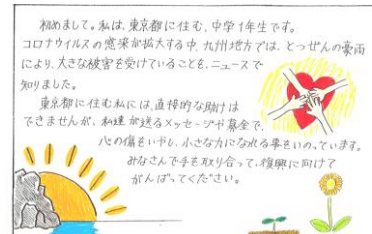 初めまして。私は、東京都に住む、中学1年生です。
コロナウイルスの感染が拡大する中、九州地方では、とつぜんの豪雨
により、大きな被害を受けていることを、ニュースで
知りました。
東京都に住む私には、直接的な助けは
できませんが、私達が送るメッセージや募金で、
心の傷をいやし、小さな力になれる事をいのっています。
みなさんで手を取り合って、復興に向けて
がんばってください。